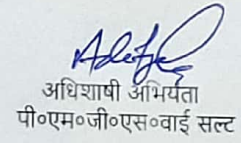 अधिशाषी अभियंता
पी०एम०जी०एस०वाई सल्ट